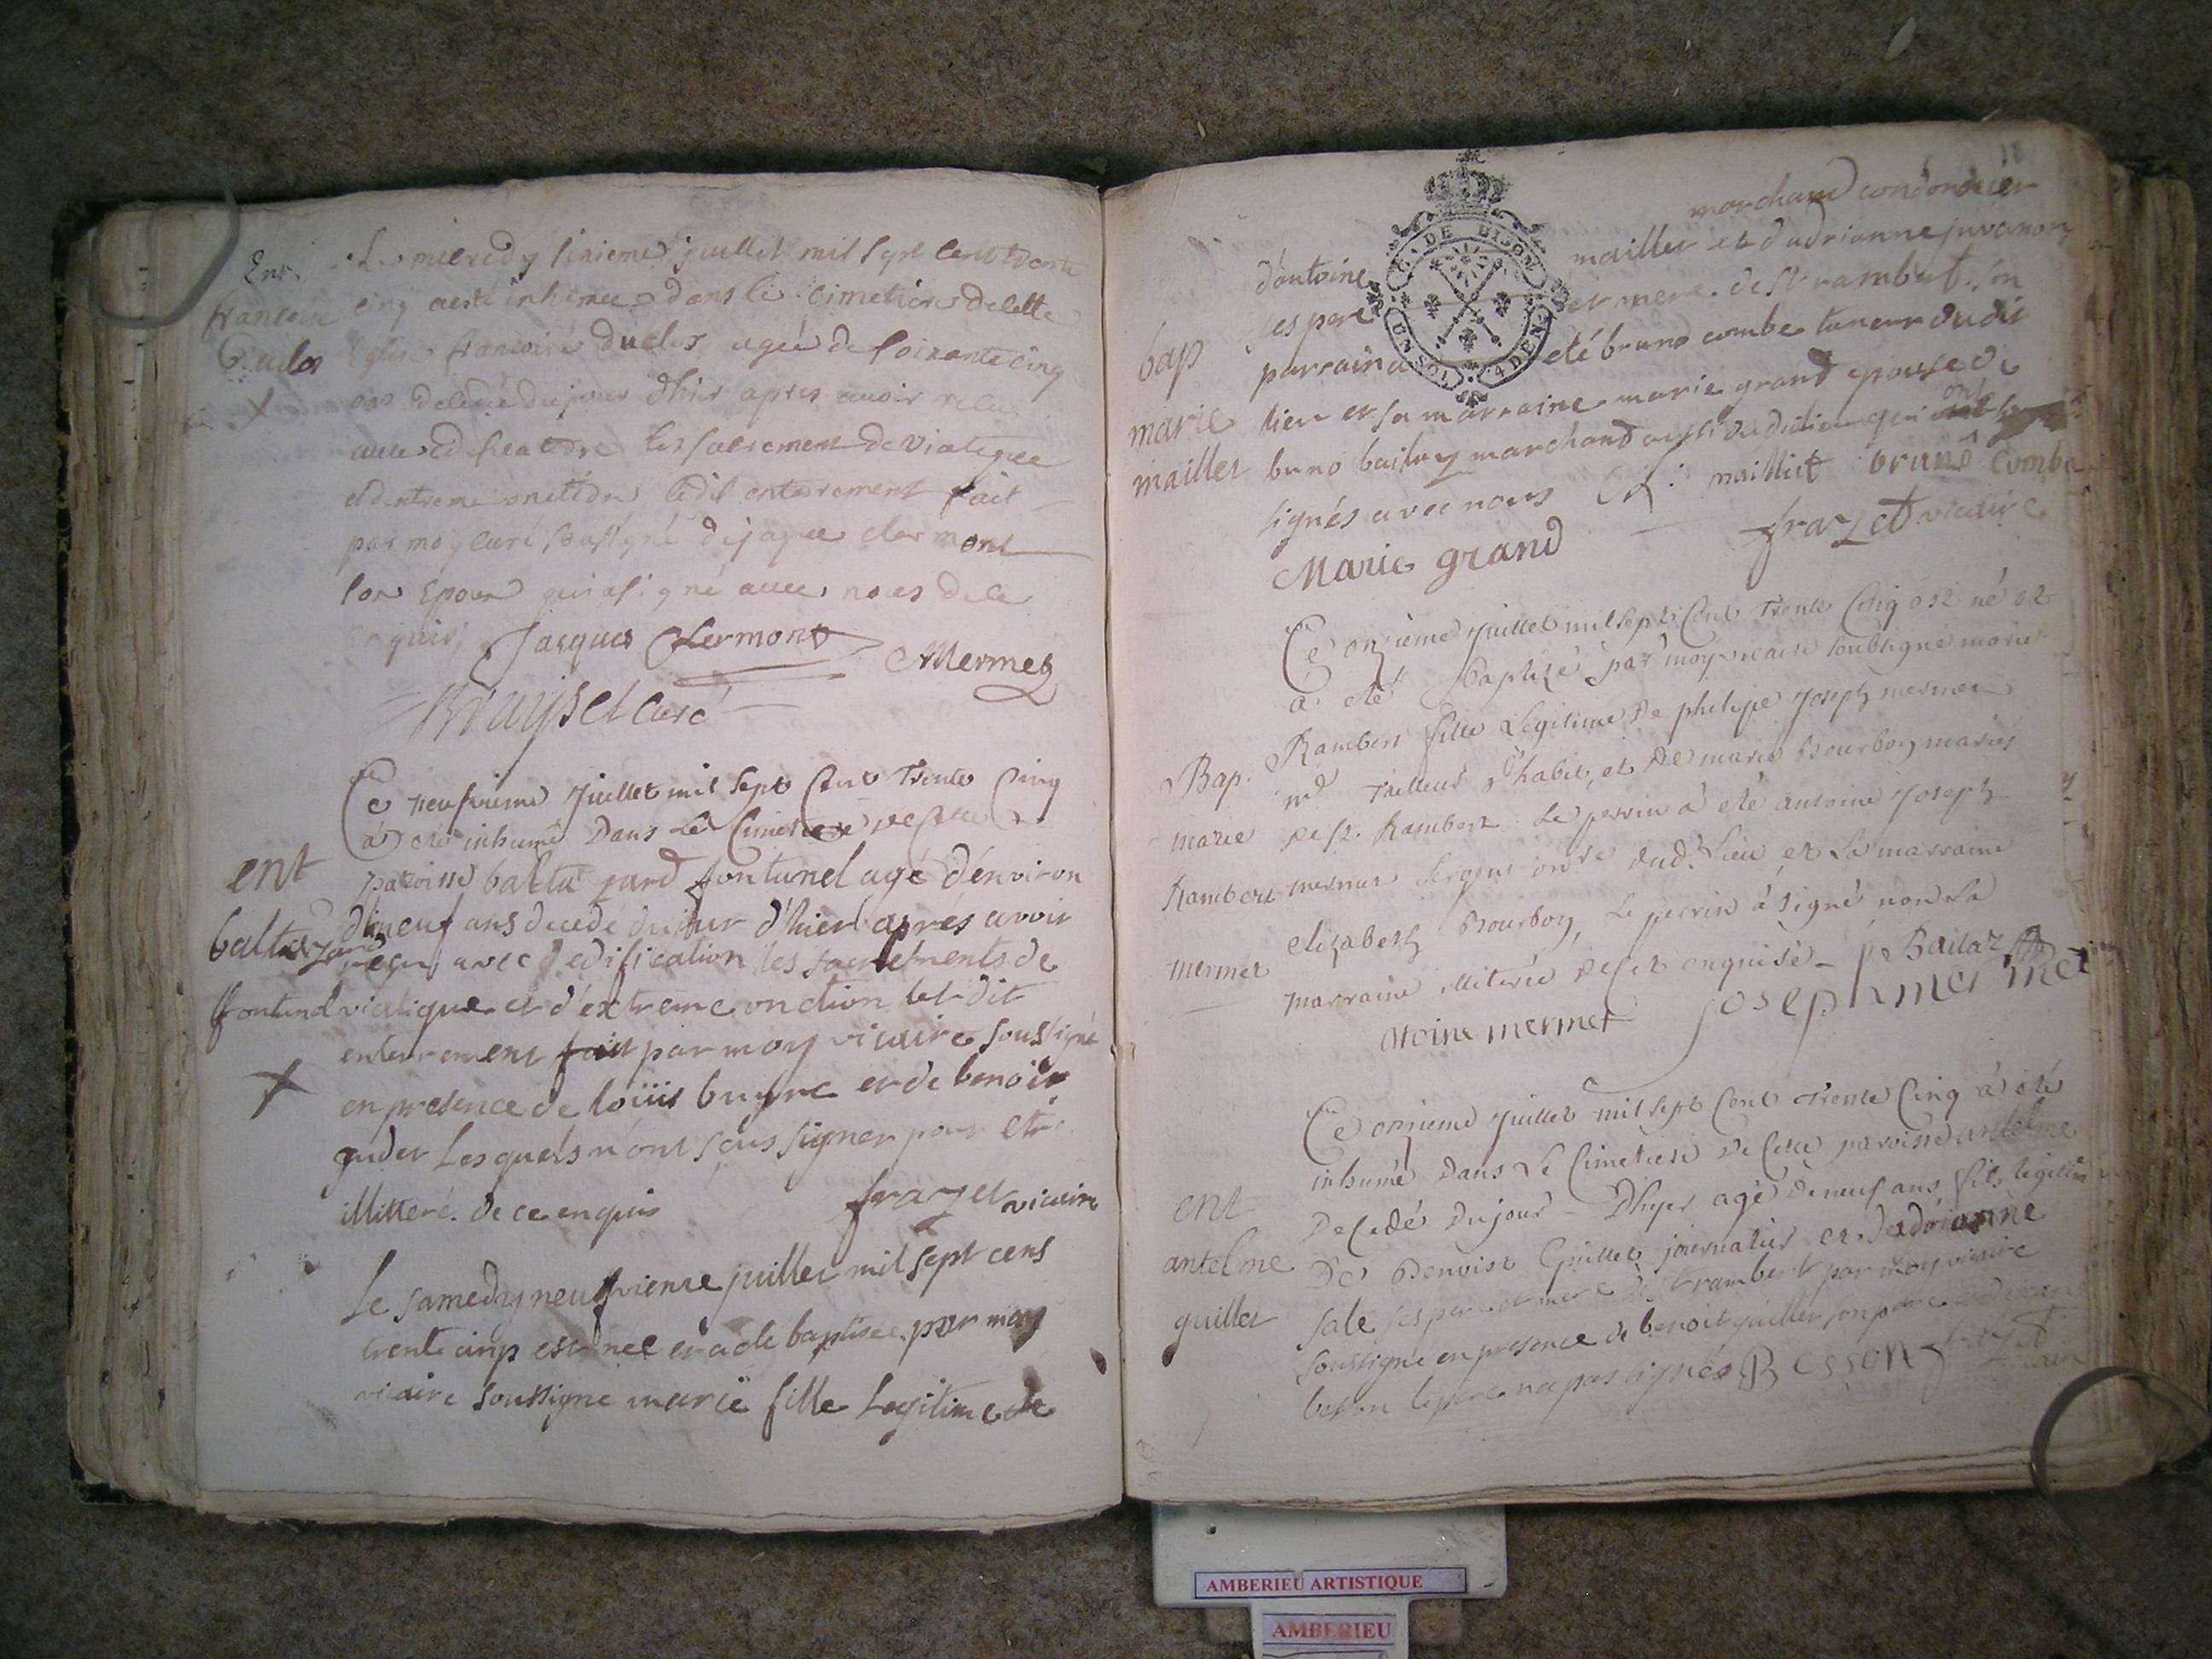 Ent.
francoise
Duclos
Le mecredy sixieme juillet mil sept cent trente
cinq a esté inhumee dans le cimetiere de cette
Eglise francoise duclos agée de soixante cinq
ans decedée du jour d'hier apres avoir receu
les sacrement de viatique
et dextreme onction ledit enterrement fait
par moy curé soussigné de jaque clermont
son Epoux qui a signé avec nous de ce
enquis
Jacques Clermont
Mermet
curé
ent
baltazard
fontanel
Ce neufvieme Juillet mil sept Cent Trente Cinq
à été inhumé Dans Le Cimetiere de Cette
paroisse baltazard fontanel agé d'environ
neuf ans decedé du jour d'hier aprés avoir
reçu avec dedification les sacrements de
viatique et d'extreme onction le dit
enterrement fait par moy vicaire soussigné
en presence de loüis bruyre et de benoit
Les quels n'ont sçus signer pour etre
illitteré. de ce enquis
frazet vicaire
Le samedy neufvieme juillet mil sept cens
trente cinq est nee et a ete baptisée par moy
vicaire soussigne marie fille Legitime de
18
bap
marie
maillet
marchand cordonnier
d'antoine maillet et d'adrianne juvanon
ses pere et mere de St rambert. son
parrain a eté bruno combe taneur dudit
lieu et sa marraine marie grand epouse de
buno bailly marchand aussi dudit lieu qui ont
signés avec nous maillet bruno combe
Marie grand
frazet vicaire
G. DE DIJON
UN SOL 4 DEN
Bap.
marie
Rambert
mermet
Ce onzieme Juillet mil sept Cent Trente Cinq est né et
à été Baptizé par moy vicaire soubsigné marie
Rambert fille Legitime de philipe Joseph mermet
md Tailleur d'habit, et de marie Bourbon mariés
de St Rambert Le perrin à eté antoine Joseph
mermet sergent ordre dud. Lieu et La marraine
elizabeth Bourbon, Le perrin à signé non La
marraine illiterée de ce enquise
joseph mermet
ntoine mermet
ent
antelme
guillet
Ce onzieme Juillet mil sept Cent Trente Cinq à eté
inhumé Dans Le Cimetiere De Cette paroisse antelme
Decedé Du jour D'hyer agé De neuf ans fils legitime
De Benoist Guillet journalier et d'adrianne
sale ses pere et mere de St rambert par moy vicaire
soussigné en presence de benoit guillet son pere
besson le pere na pas signés Besson frazet
AMBERIEU ARTISTIQUE
AMBERIEU